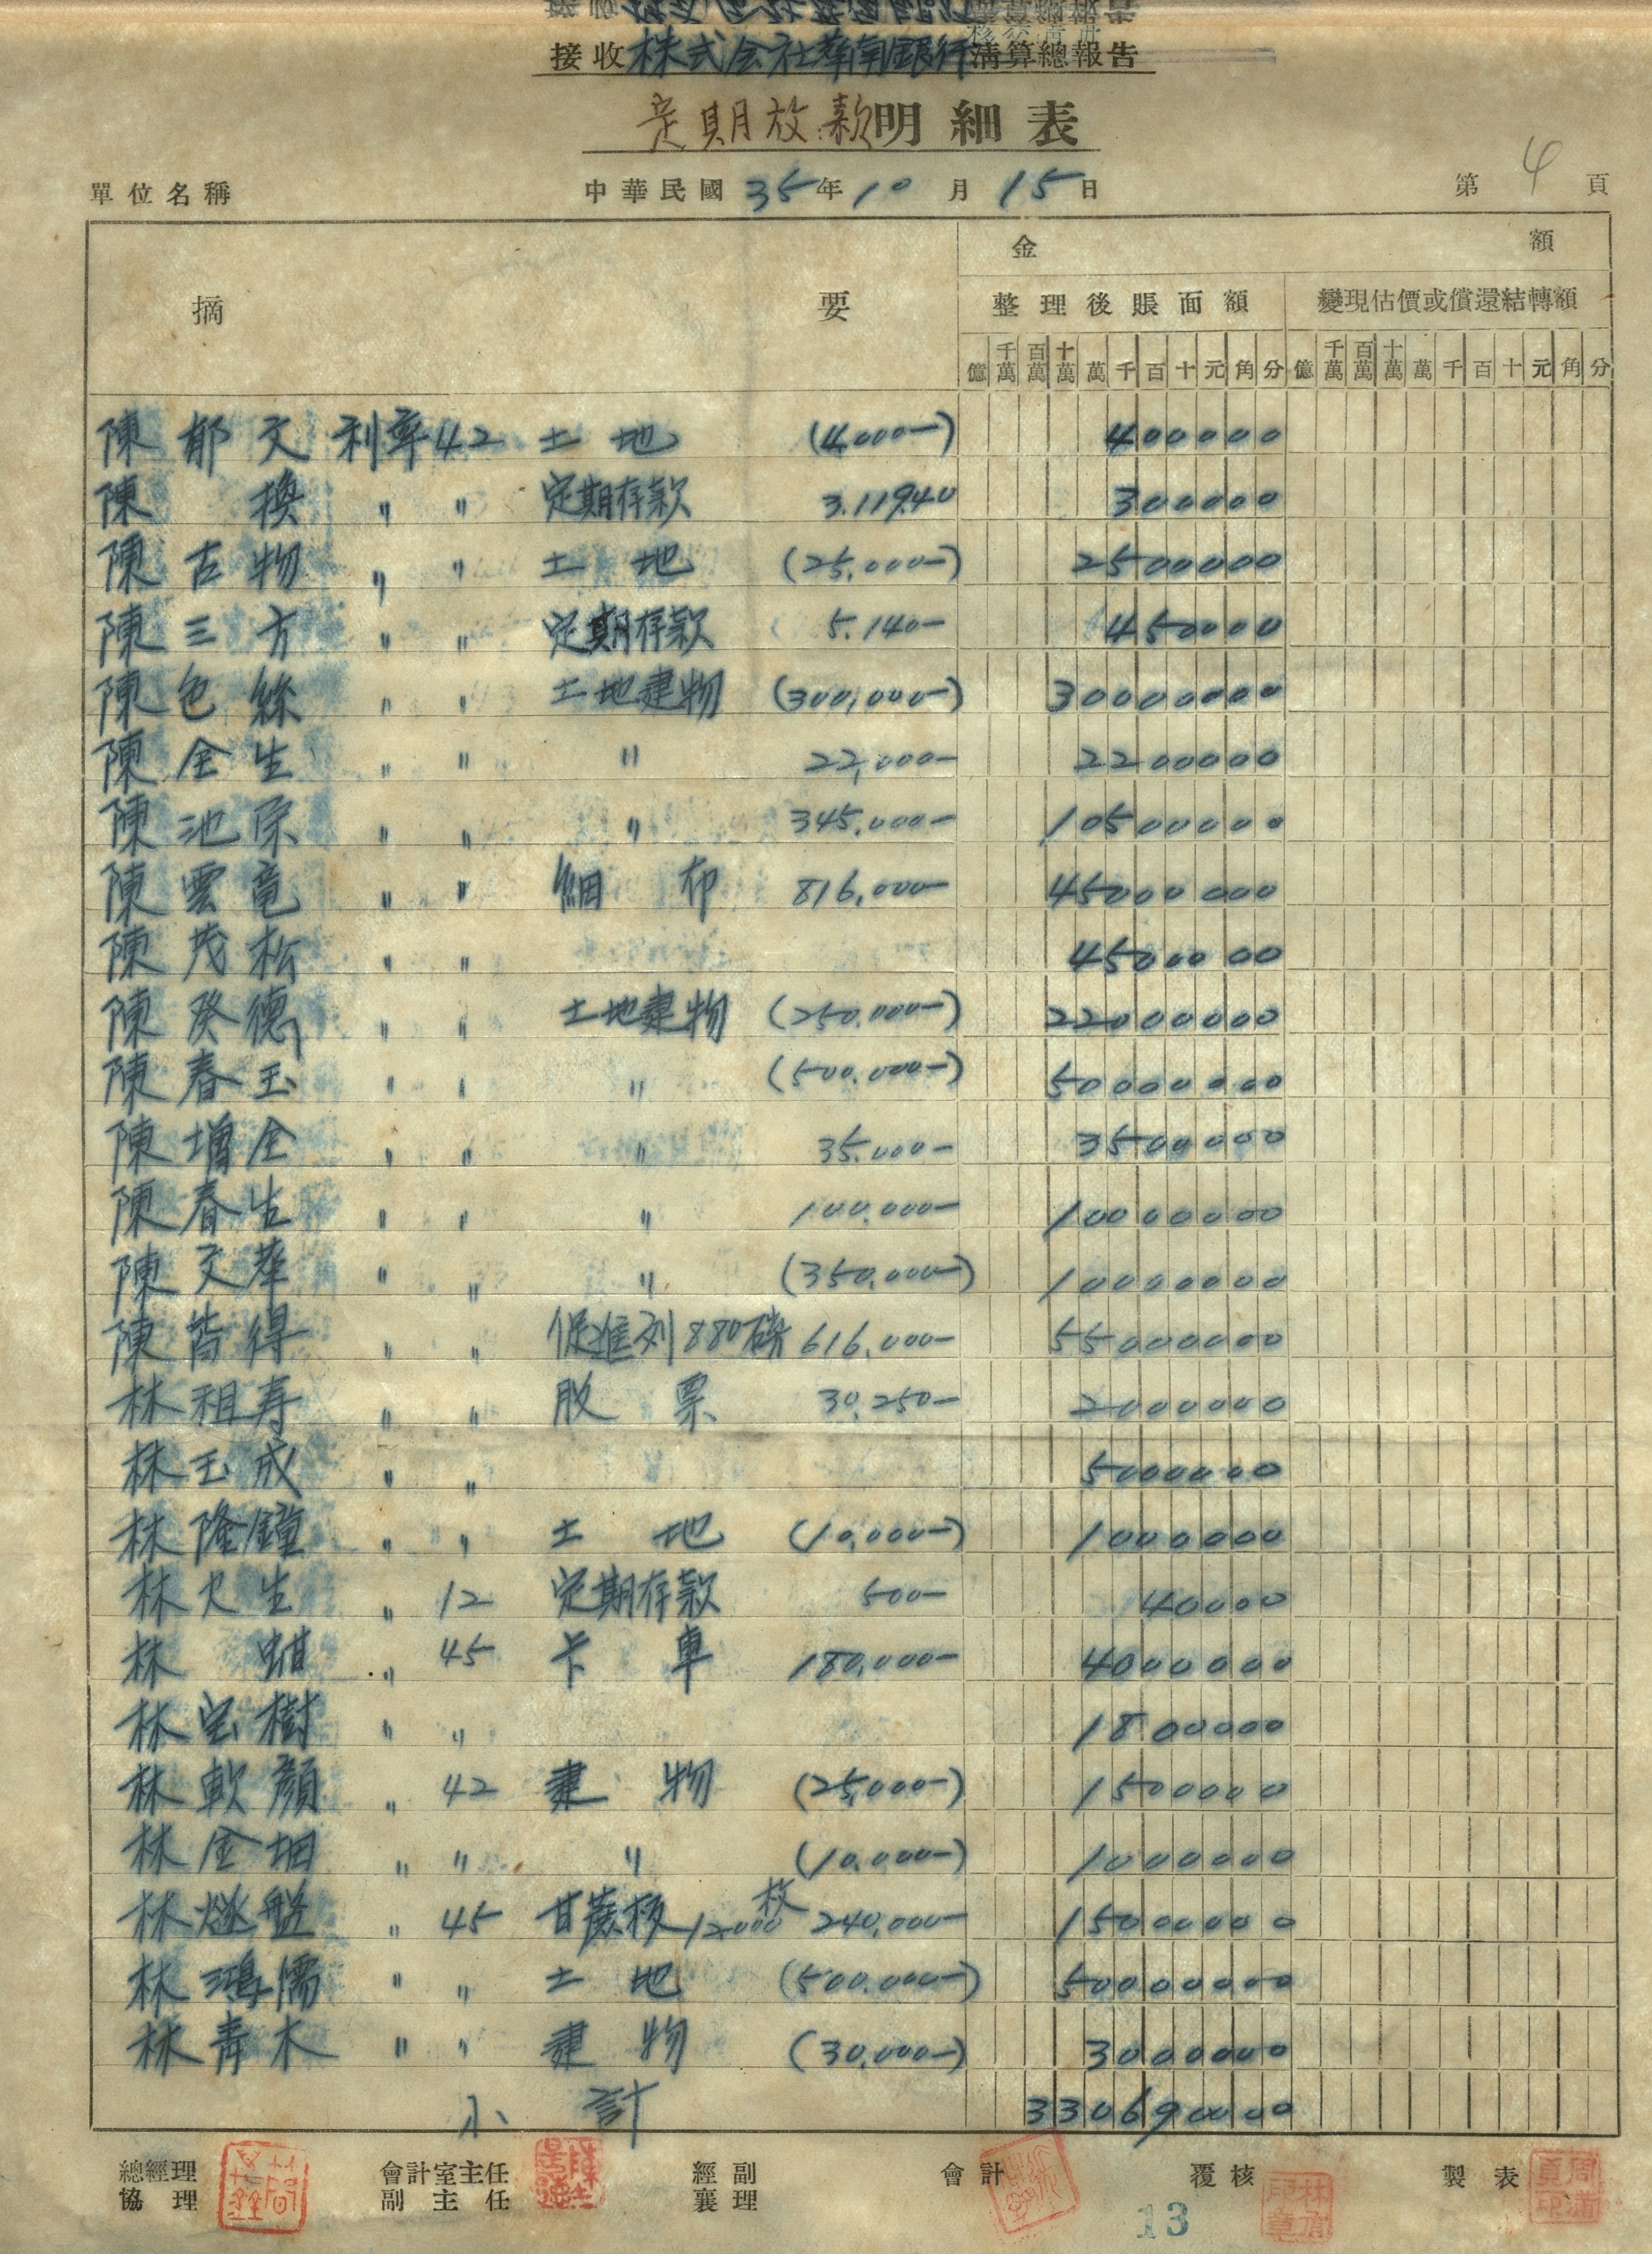 接收株式会社華南銀行清算總報告
定期放款明細表
單位名稱 中華民國35年10月15日 第4頁
摘要 金額
整理後賬面額 變現估價或償還結轉額
億 千萬 百萬 十萬 萬 千 百 十 元 角 分 億 千萬 百萬 十萬 萬 千 百 十 元 角 分
陳郁文 利率42 土地 (4,000-) 400000
陳換 〃 〃 定期存款 3.119.40 300000
陳古物 〃 〃 土地 (25,000-) 2500000
陳三方 〃 〃 定期存款 5.140- 450000
陳包絲 〃 〃 土地建物 (300,000-) 30000000
陳全生 〃 〃 〃 22,000- 2200000
陳池宗 〃 〃 〃 345,000- 10500000
陳雲竜 〃 〃 細布 816,000- 45000000
陳茂松 〃 〃 4500000
陳癸德 〃 〃 土地建物 (250,000-) 22000000
陳春玉 〃 〃 〃 (500,000-) 50000000
陳增全 〃 〃 〃 35,000- 3500000
陳春生 〃 〃 〃 100,000- 10000000
陳文華 〃 〃 〃 (350,000-) 10000000
陳皆得 〃 〃 促進剂880磅 616,000- 55000000
林祖寿 〃 〃 股票 30,250- 2000000
林玉成 〃 〃 5000000
林隆鐘 〃 〃 土地 (10,000-) 1000000
林火生 〃 12 定期存款 500- 40000
林蚶 〃 45 卡車 180,000- 4000000
林宝樹 〃 〃 1800000
林軟顏 〃 42 建物 (25,000-) 1500000
林金 〃 〃 〃 (10,000-) 1000000
林 〃 45 甘蔗板12000枚 240,000- 15000000
林鴻儒 〃 〃 土地 (500,000-) 50000000
林青木 〃 〃 建物 (30,000-) 3000000
小計 330690000
總經理 會計室主任 經副 會計 覆核 製表
協理 副主任 襄理
13